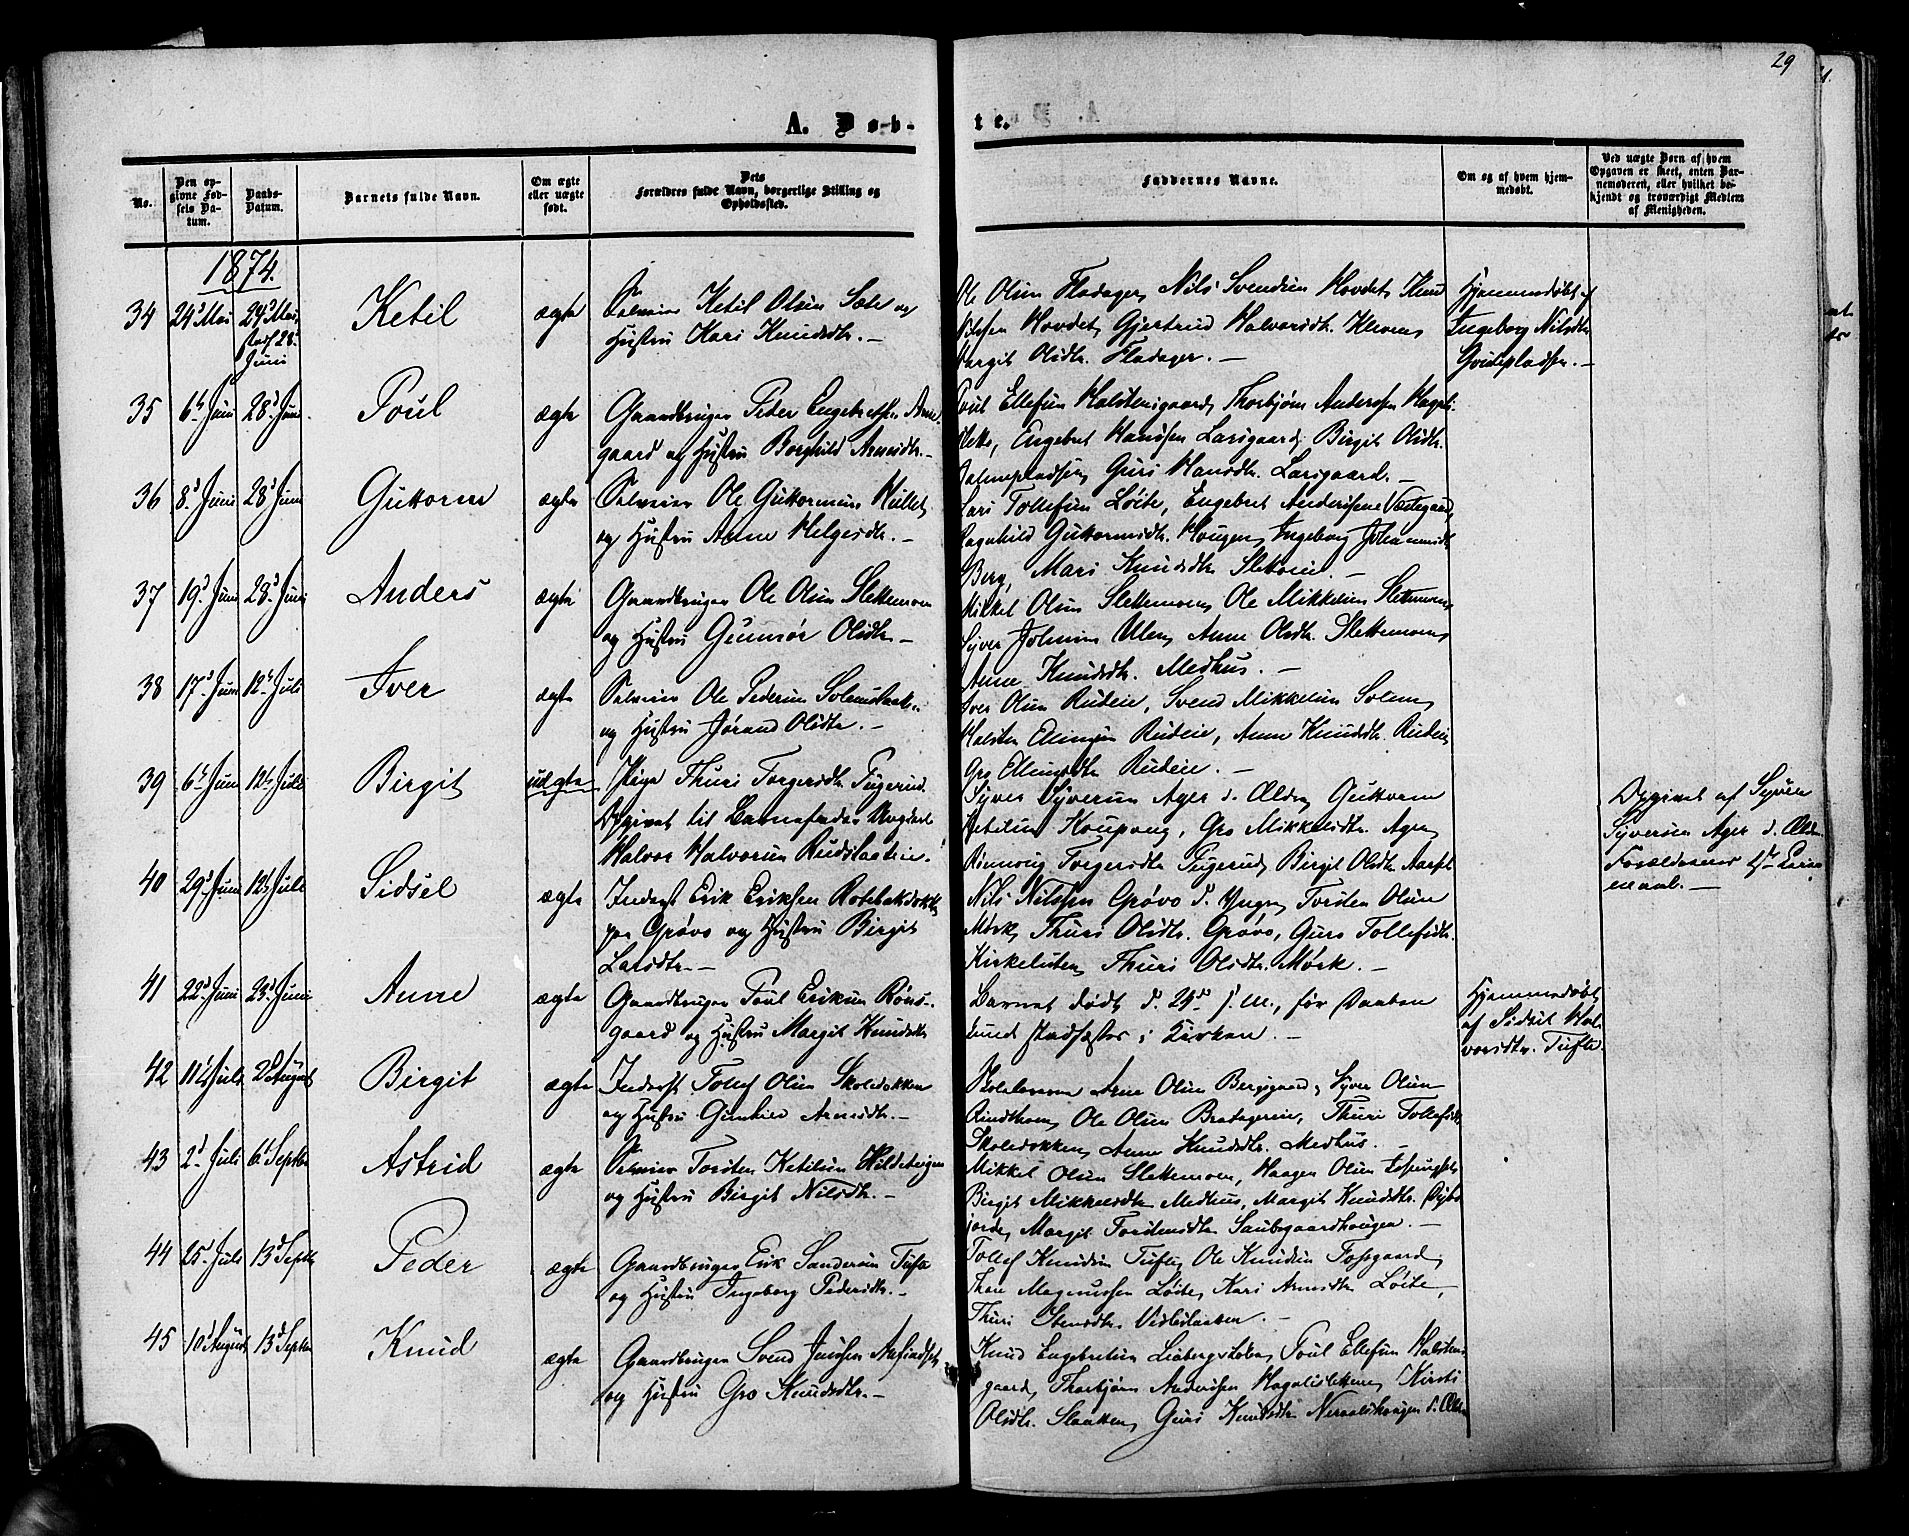 29
A. Døb-
te.
No.
Den op-
givne Fød-
sels Da-
tum.
Daabs-
Datum.
Barnets fulde Navn.
Om ægte
eller uægte
født.
Dets
Forældres fulde Navn, borgerlige Stilling og
Opholdssted.
Faddernes Navne.
Om og af hvem hjem-
medøbt.
Ved uægte Børn af hvem
Opgaven er skeet, enten Bar-
nemoderen, eller hvilket be-
kjendt og troværdigt Medlem
af Menigheden.
1874.
34 24d Mai 24d Mai, stadf 28. Juni Ketil ægte
Selveier Ketil Olsen Sæte og
Hustru Kari Knudsdtr. –
Ole Olsen Fladager, Nils Svendsen Hovdet, Knud
Nilssen Hovdet, Gjertrud Halvorsdtr. Kleven,
Margit Olsdtr. Fladager. –
Hjemmedøbt af
Ingeborg Nilsdtr.
35 6te Juni 28d Juni Poul ægte
Gaardbruger Peder Engebretsen Arne-
gaard og Hustru Borghild Arnesdtr. –
Poul Ellefsen Halstensgaard, Thorbjørn Andersen Hagali-
slette, Engebret Hansen Larsgaard, Birgit Olsdtr.
Guri Hansdtr. Larsgaard. –
36 8d Juni 28d Juni Guttorm ægte
Selveier Ole Guttormsen Hullet
og Hustru Anne Helgesdtr. –
Lars Tollefsen Løite, Engebret Andersen Vestegaard,
Ragnhild Guttormsdtr. Haugen, Ingeborg Johannesdtr.
Berg, Mari Knudsdtr. Sletteie. –
37 19d Juni 28d Juni Anders ægte
Gaardbruger Ole Olsen Slettemoen
og Hustru Gunnør Olsdtr. –
Mikkel Olsen Slettemoen, Ole Mikkelsen Slettemoen,
Syver Johnsen Ulen, Anne Olsdtr. Slettemoen,
Anne Knudsdtr. Medhus. –
38 17d Juni 12te Juli Iver ægte
Selveier Ole Pedersen
og Hustru Jørand Olsdtr. –
Iver Olsen Rudeie, Svend Mikkelsen Solem,
Halsten Ellingsen Rudeie, Anne Knudsdtr. Rudeie,
Gro Rudeie. –
39 6te Juni 12te Juli Birgit uægte
Pige Thuri Torgersdtr. Tugerud.
Opgivet til Barnefader Ungkarl
Halvor Halvorsen Rudslaateie.
Syver Syversen Ager d. Ældre, Guttorm
Ketilsen Gro Mikkelsdtr. Ager,
Rønnoug Torgersdtr. Tugerud, Birgit Olsdtr.
Opgivet af Syver
Syversen Ager d. Ældre.
Forældrenes 1ste Barn
40 29d Juni 12te Juli Sidsel ægte
Inderst Erik Eriksen
paa Grøvo og Hustru Birgit
Larsdtr. –
Nils Nilssen Grøvo d. Yngre, Torsten Olsen
Mørk, Thuri Olsdtr. Grøvo, Guro Tollefsdtr.
Thuri Olsdtr. Mørk. –
41 22d Juni 23d Juni Anne ægte
Gaardbruger Poul Eriksen Røns-
gaard og Hustru Margit Knudsdtr.
Barnet dødt d. 29de s. M., før Daaben
kunde stadfæstes i Kirken. –
Hjemmedøbt
af Sidsel Hal-
vorsdtr. Tufte.
42 11te Juli 2d August Birgit ægte
Inderst Tollef Olsen Skoledokken
og Hustru Gunhild Arnesdtr. –
Skolelærer Arne Olsen Bergsgaard, Syver Olsen
Ole Olsen Bratagereie, Thuri Tollefsdtr.
Skoledokken, Anne Knudsdtr. Medhus. –
43 2d Juli 6te Septbr Astrid ægte
Selveier Torsten Ketilsen
og Hustru Birgit Nilsdtr. –
Mikkel Olsen Slettemoen, Haagen Olsen
Birgit Mikkelsdtr. Medhus, Margit Knudsdtr. Dybs-
jorde, Margit Torstensdtr. –
44 25d Juli 13d Septbr Peder ægte
Gaardbruger Erik Sandersen Tufte
og Hustru Ingeborg Pedersdtr. –
Tollef Knudsen Tufte, Ole Knudsen Fossgaard,
Thore Magnussen Løite, Kari Arnesdtr. Løite,
Thuri Stensdtr. –
45 10d August 13d Septbr Knud ægte
Gaardbruger Svend
og Hustru Gro Knudsdtr. –
Knud Engebretsen Poul Ellefsen Halstens-
gaard, Thorbjørn Andersen Hagalisletten, Kirsti
Olsdtr. Guri Knudsdtr. d. Ældre